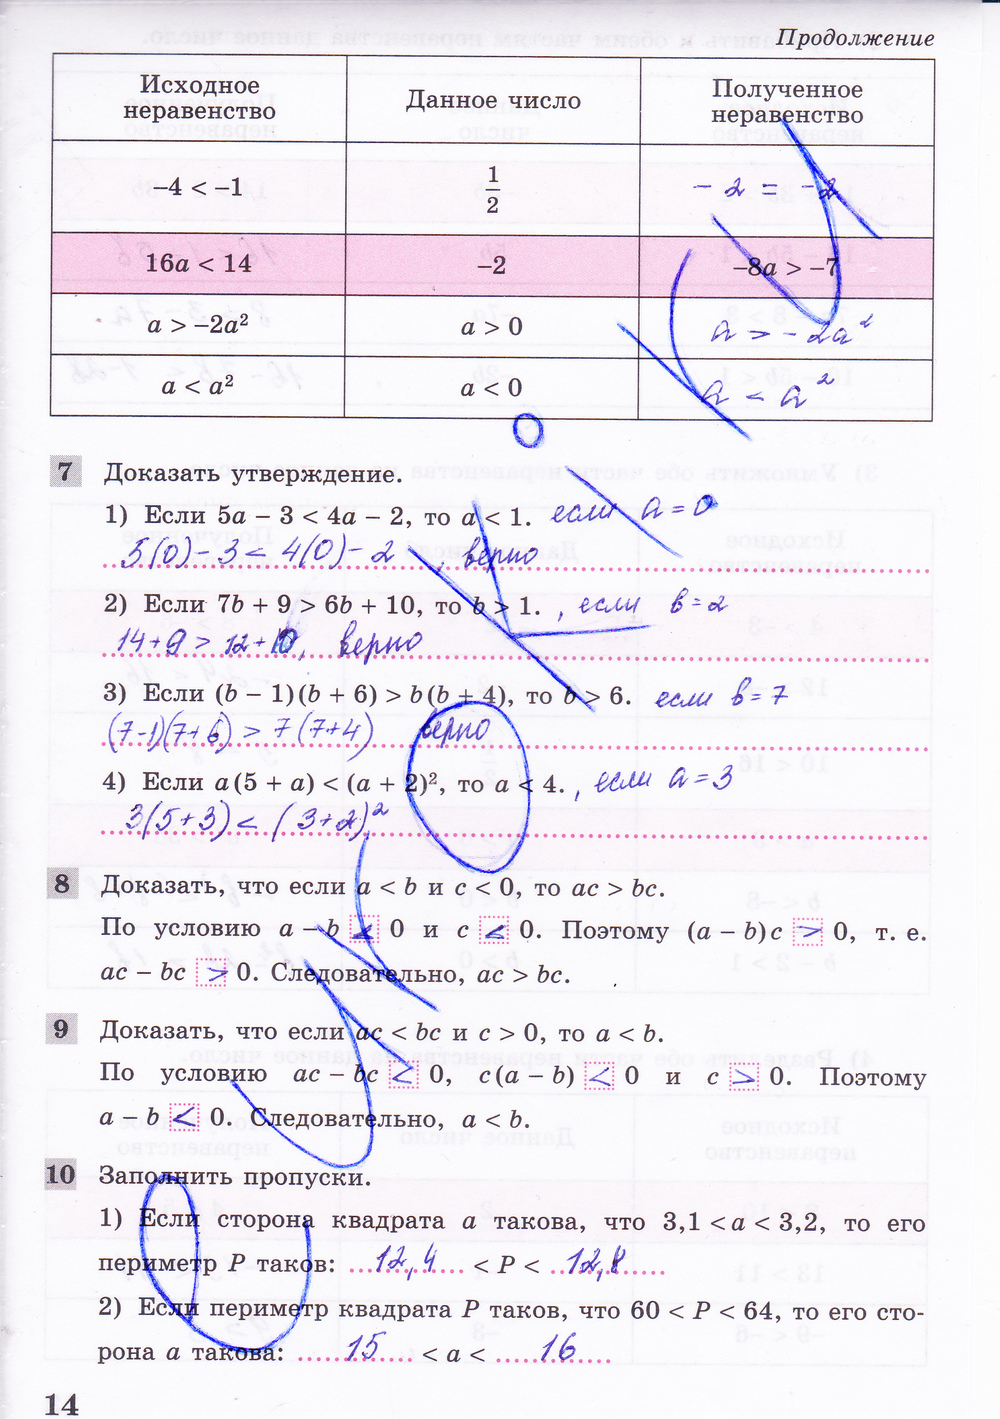 Продолжение
Исходное неравенство | Данное число | Полученное неравенство
−4 < −1 | 1/2 | − 2 = − 2
16a < 14 | −2 | −8a > −7
a > −2a² | a > 0 | a > − 2a²
a < a² | a < 0 | a < a²
7 Доказать утверждение.
1) Если 5a − 3 < 4a − 2, то a < 1. если a = 0
5(0) − 3 < 4(0) − 2, верно
2) Если 7b + 9 > 6b + 10, то b > 1. , если в = 2
14 + 9 > 12 + 10, верно
3) Если (b − 1)(b + 6) > b(b + 4), то b > 6. если в = 7
(7-1)(7+6) > 7(7+4) верно
4) Если a(5 + a) < (a + 2)², то a < 4. , если a = 3
3(5+3) < (3+2)²
8 Доказать, что если a < b и c < 0, то ac > bc.
По условию a − b < 0 и c < 0. Поэтому (a − b)c > 0, т. е.
ac − bc > 0. Следовательно, ac > bc.
9 Доказать, что если ac < bc и c > 0, то a < b.
По условию ac − bc < 0, c(a − b) < 0 и c > 0. Поэтому
a − b < 0. Следовательно, a < b.
10 Заполнить пропуски.
1) Если сторона квадрата a такова, что 3,1 < a < 3,2, то его
периметр P таков: 12,4 < P < 12,8
2) Если периметр квадрата P таков, что 60 < P < 64, то его сто-
рона a такова: 15 < a < 16
14